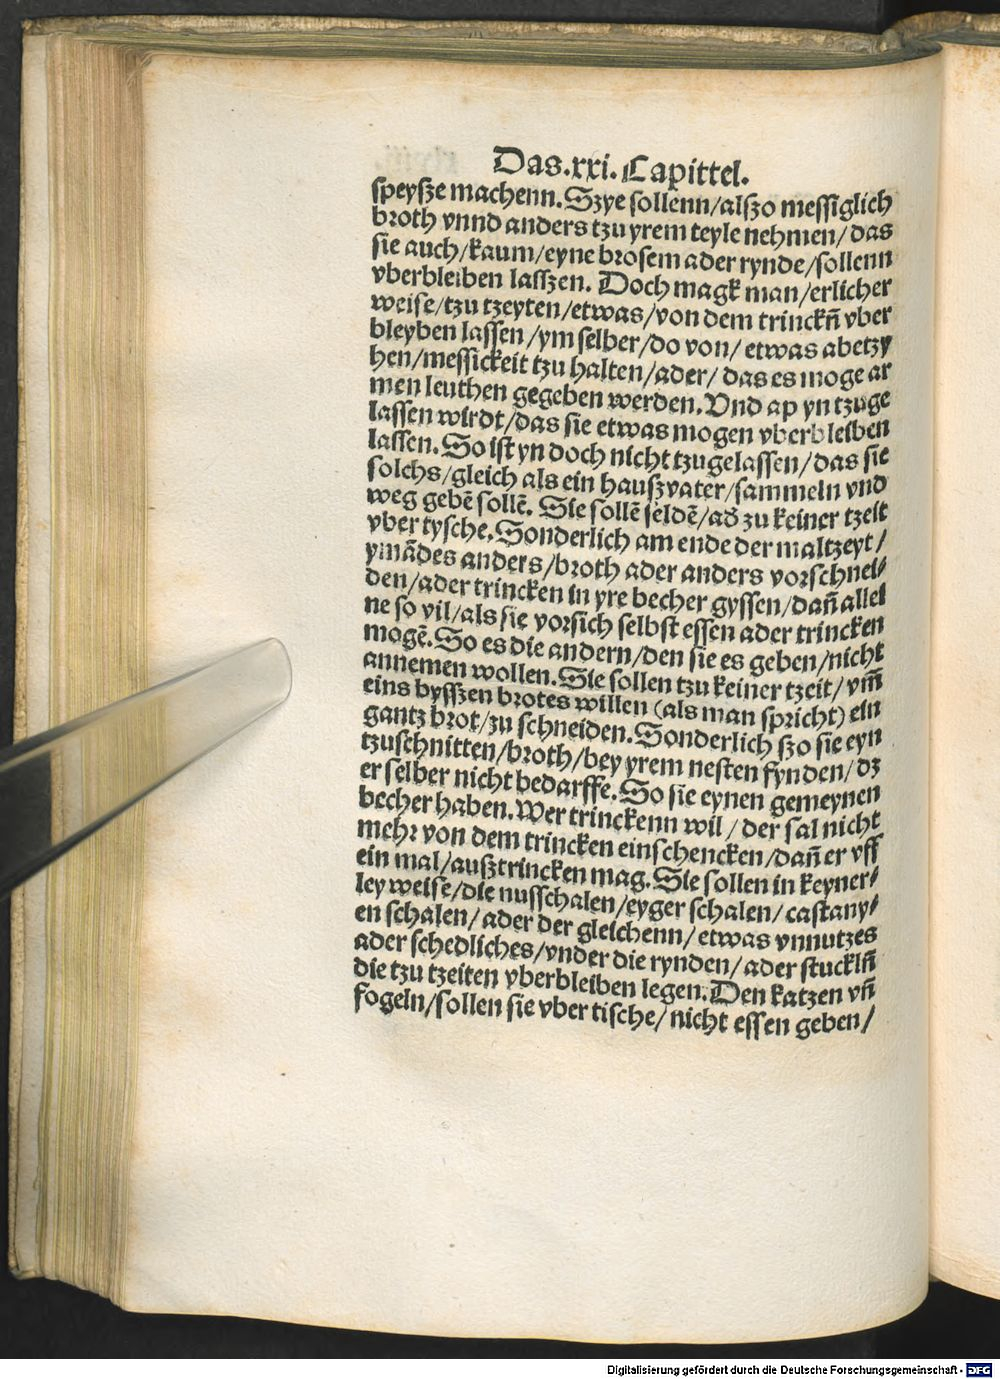 Das.xxi.Capittel.
speysze machenn.Szye sollenn/alszo messiglich
broth vnnd anders tzu yrem teyle nehmen/das
sie auch/kaum/eyne brosem ader rynde/sollenn
vberbleiben lasszen. Doch magk man/erlicher
weise/tzu tzeyten/etwas/von dem trinckñ vber
bleyben lassen/ym selber/do von/ etwas abetzy
hen/messickeit tzu halten/ader/ das es moge ar
men leuthen gegeben werden.Vnd ap yn tzuge
lassen wirdt/das sie etwas mogen vberbleiben
lassen.So ist yn doch nicht tzugelassen/das sie
solchs/gleich als ein hauszvater/sammeln vnd
weg gebē sollē. Sie sollē seldē/ad zu keiner tzeit
vber tysche.Sonderlich am ende der maltzeyt/
ymādes anders/broth ader anders vorschnei/
den/ader trincken in yre becher gyssen/dañ allei
ne so vil/als sie vorsich selbst essen ader trincken
mogē.So es die andern/den sie es geben/nicht
annemen wollen.Sie sollen tzu keiner tzeit/vm̄
eins bysszen brotes willen (als man spricht) ein
gantz brot/zu schneiden.Sonderlich szo sie eyn
tzuschnitten/broth/bey yrem nesten fynden/dz
er selber nicht bedarffe.So sie eynen gemeynen
becher haben.Wer trinckenn wil/der sal nicht
mehr von dem trincken einschencken/dañ er vff
ein mal/ausztrincken mag.Sie sollen in keyner/
ley weise/die nusschalen/eyger schalen/castany/
en schalen/ader der gleichenn/etwas vnnutzes
ader schedliches/vnder die rynden/ader stucklñ
die tzu tzeiten vberbleiben legen.Den katzen vñ
fogeln/sollen sie vber tische/nicht essen geben/
Digitalisierung gefördert durch die Deutsche Forschungsgemeinschaft - DFG